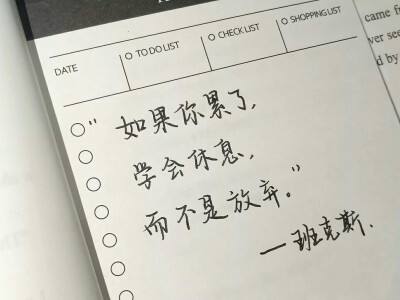 DATE
TO DO LIST
CHECK LIST
SHOPPING LIST
came
ver see
d by
“如果你累了,
学会休息,
而不是放弃.”
一班克斯.